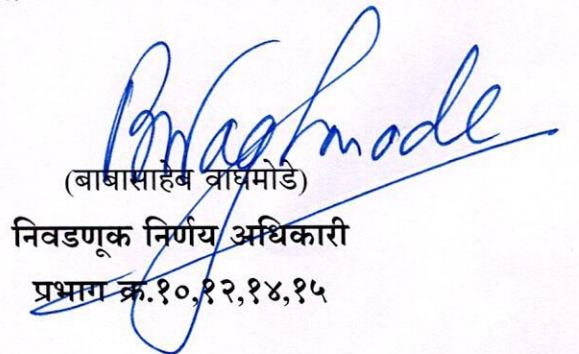 BWaghmode
(बाबासाहेब वाघमोडे)
निवडणूक निर्णय अधिकारी
प्रभाग क्र.१०,१२,१४,१५